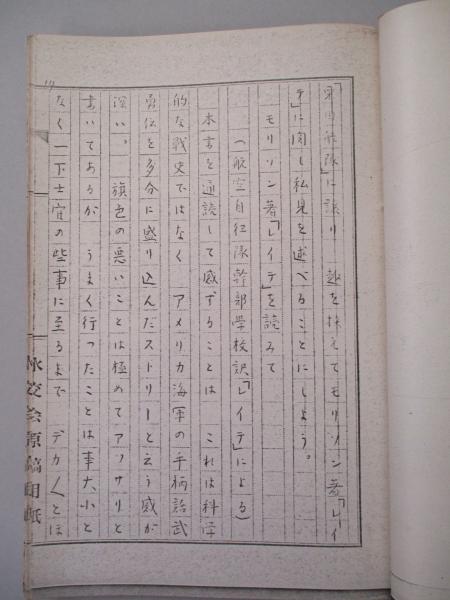 」に譲り 趣を換えてモリソン著「レイ
テ」に関し私見を述べることにしよう。
モリソン著「レイテ」を読みて
(航空自衛隊幹部学校訳「レイテ」による)
本書を通読して感ずることは これは科学
的な戦史ではなく アメリカ海軍の手柄話武
勇伝を多分に盛り込んだストリーと云う感が
深い。 旗色の悪いことは極めてアッサリと
書いてあるが うまく行ったことは事大小と
なく一下士官の些事に至るまで デカ〱とほ
水交会原稿用紙